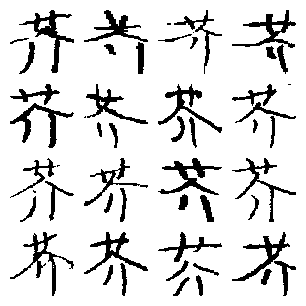 芥芥芥芥
芥芥芥芥
芥芥芥芥
芥芥芥芥